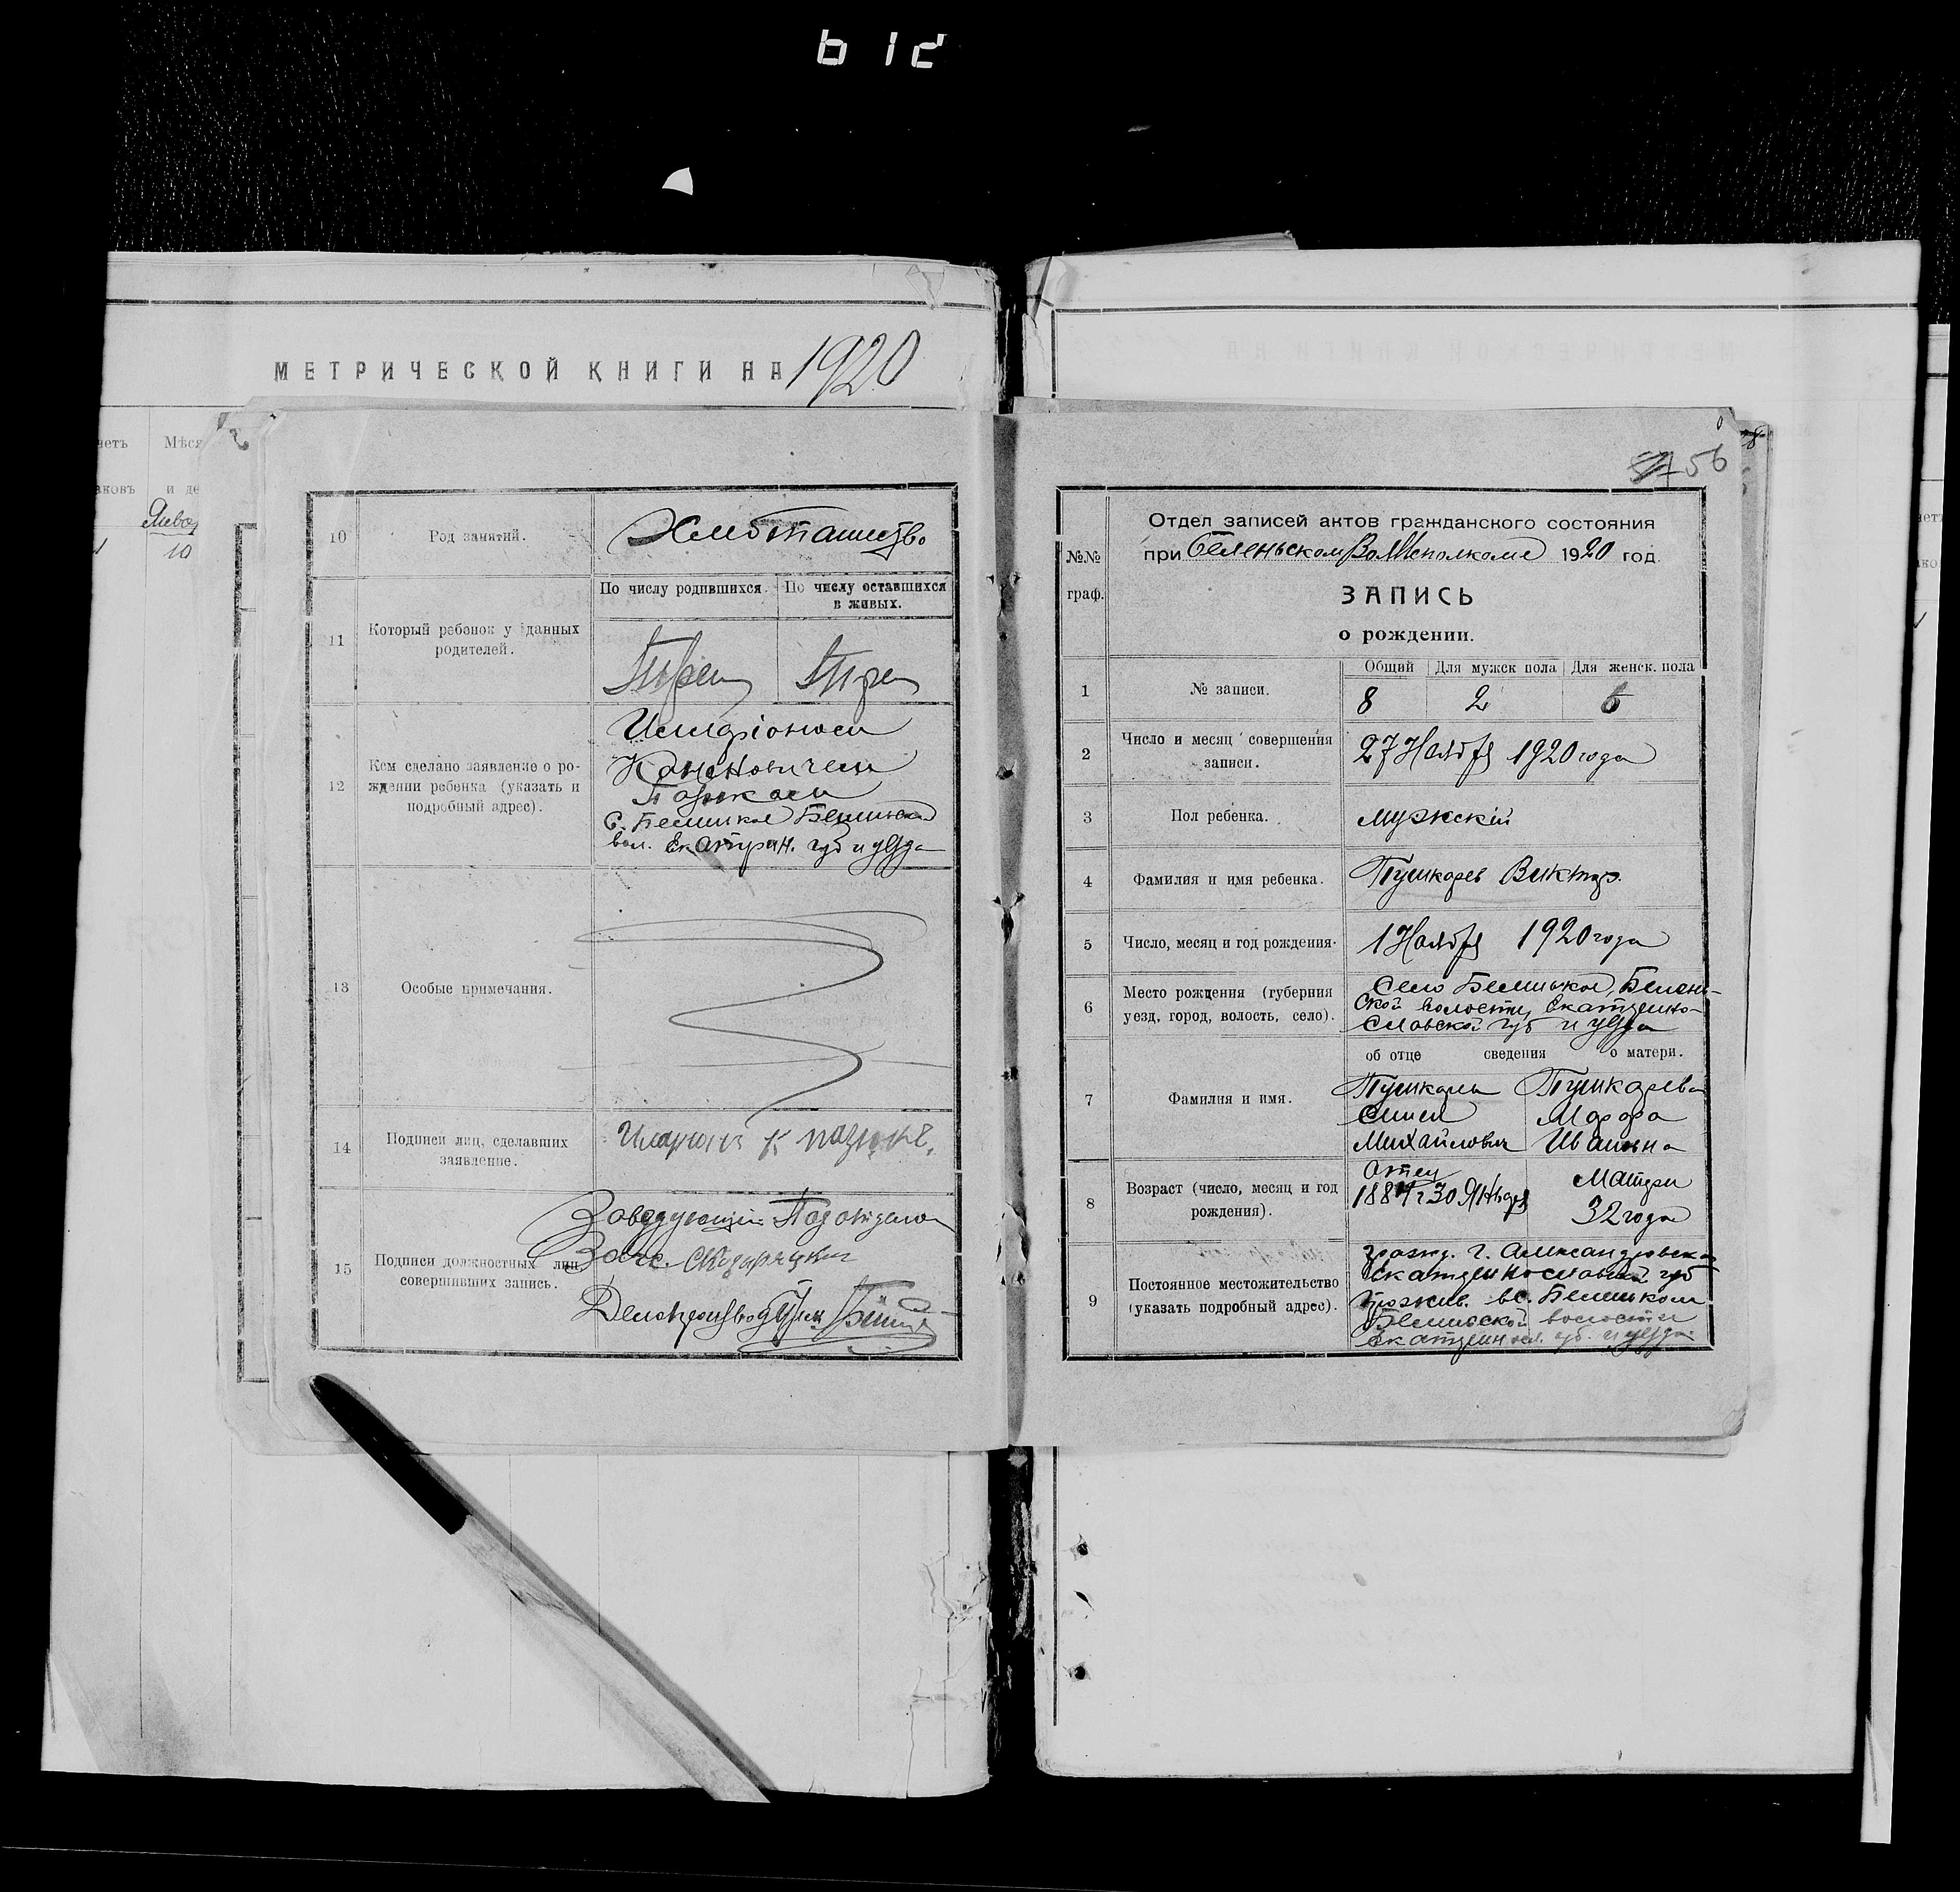 МЕТРИЧЕСКОЙ КНИГИ НА 1920
Мѣся
и де
10
10 Род занятий. Хлебопашество
По числу родившихся. По числу оставшихся в живых.
11 Который ребенок у данных
родителей.
12 Кем сделано заявление о ро-
ждении ребенка (указать и
подробный адрес).
Илларіоном
вол. Екатерин. губ и уезда
13 Особые примечания.
14 Подписи лиц, сделавших
заявление.
15 Подписи должностных лиц
совершивших запись.
Заведующий Подотделом
Загс.
56
№№
граф.
Отдел записей актов гражданского состояния
при Беленьском Волисполкоме 1920 год.
ЗАПИСЬ
о рождении.
Общий Для мужск пола Для женск. пола
1 № записи. 8 2 6
2 Число и месяц совершения
записи. 27 Ноября 1920 года
3 Пол ребенка. мужскій
4 Фамилия и имя ребенка. Пушкарев Виктор.
5 Число, месяц и год рождения. 1 Ноября 1920 года
6 Место рождения (губерния
уезд, город, волость, село).
Село Беленькое, Белень-
ской волости, Екатерино-
славской губ и уезда
об отце сведения о матери.
7 Фамилия и имя.
Пушкарев Пушкарева
Михайлович Ивановна
8 Возраст (число, месяц и год
рождения).
Отец Матери
30 Января 32 года
9 Постоянное местожительство
(указать подробный адрес).
гражд. г. Александровска
Екатеринославской губ
прожив. в с. Беленьком
Беленьской волости
Екатериносл. губ. и уезда.